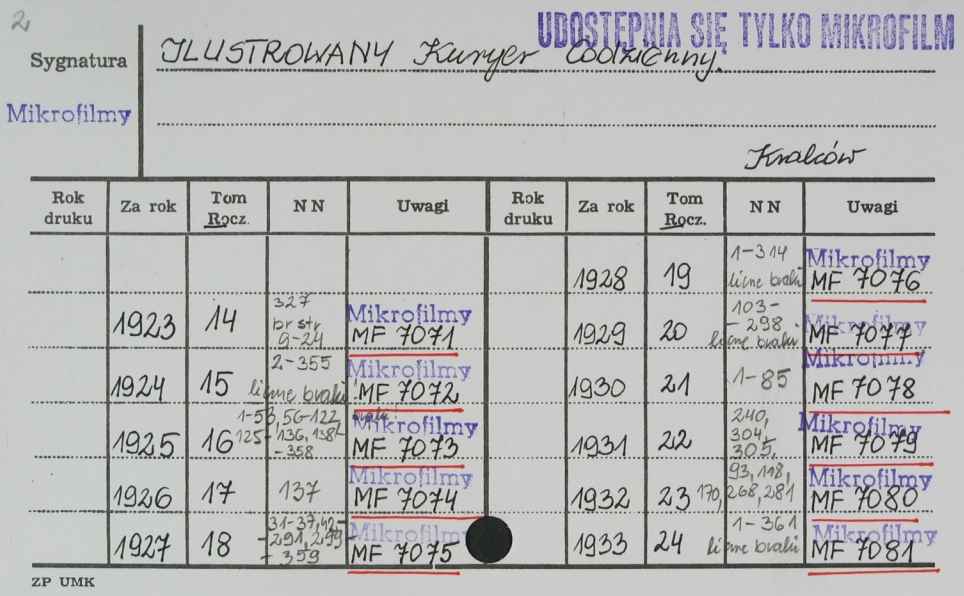 2
UDOSTĘPNIA SIĘ TYLKO MIKROFILM
Sygnatura ILUSTROWANY Kuryer Codzienny.
Mikrofilmy
Kraków
Rok druku Za rok Tom Rocz. NN Uwagi Rok druku Za rok Tom Rocz. NN Uwagi
1928 19 1-314 liczne braki Mikrofilmy MF 7076
1923 14 327 br str. 9-24 Mikrofilmy MF 7071
1929 20 103-298 liczne braki Mikrofilmy MF 7077
1924 15 2-355 liczne braki! Mikrofilmy MF 7072
1930 21 1-85 Mikrofilmy MF 7078
1925 16 1-53, 56-122, 125-136, 138-358 Mikrofilmy MF 7073
1931 22 240, 304, 305, Mikrofilmy MF 7079
1926 17 137 Mikrofilmy MF 7074
1932 23 93, 118, 170, 268, 281 Mikrofilmy MF 7080
1927 18 31-37, 42-291, 299-359 Mikrofilmy MF 7075
1933 24 1-361 liczne braki Mikrofilmy MF 7081
ZP UMK